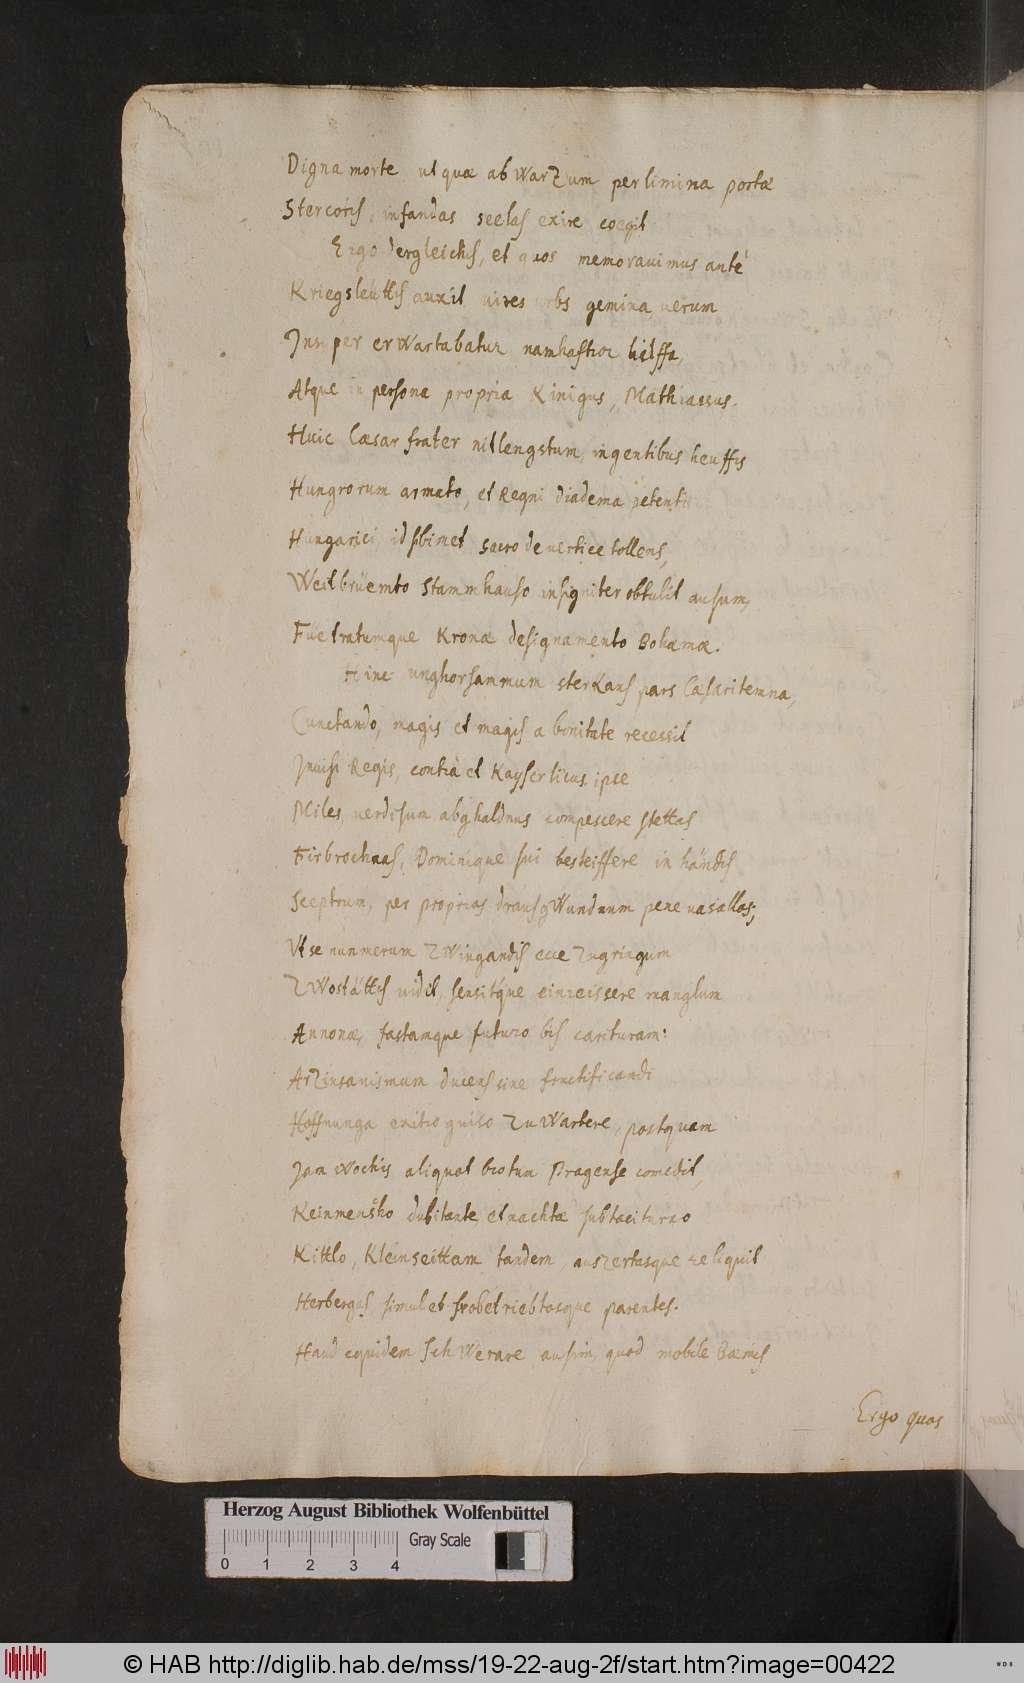 Digna morte ut quæ ab WarZum per limina portæ
Stercoris, infandas seelas exire coegit
Ergo dergleichis, et quos memoravimus antè
Kriegsleüttis auxit vires urbs gemina, verum
Insuper erWartabatur namhaftior hilffa,
Atque in persona propria Kinigus, Mathiassus.
Huic Cæsar frater nit lengstum, ingentibus heuffis
Hungrorum armato, et Regni diadema petenti
Hungarici, id sibimet sacro de vertice tollens,
Weit brüemto Stammhauso insigniter obtulit ausum,
Füetratumque Kronæ designamento Bohæmæ.
Hinc unghorsammum sterkans pars Cæsari temna,
Cunctando, magis et magis a bonitate recessit
Invisi Regis, contrà et Kayserlicus ipse
Miles, verdisum abghaldnus compescere stettas
Firbrochnas, Dominique sui besteiffere in händis
Sceptrum, per proprios drausgWundnum pene vasallos;
Ut se nun merum ZWingandis ecce Zugringum
ZWostättis vidit, sensitque einreissere manglum
Annonæ, fastamque futuro bis carituram:
ArZinsanismum ducens sine fructificandi
Hoffnunga exitio guiso ZuWartere, postquam
Jam Wochis aliquot brotum Pragense comedit,
Keinmenscho dubitante, et nachtæ sub taciturno
Kittlo, Kleinseittam tandem, ausZertasque reliquit
Herbergas simul et frobetriebtosque parentes.
Haud equidem SchWerare ausim, quod mobile Bœmis
Ergo quos
Herzog August Bibliothek Wolfenbüttel
Gray Scale
0 1 2 3 4
© HAB http://diglib.hab.de/mss/19-22-aug-2f/start.htm?image=00422